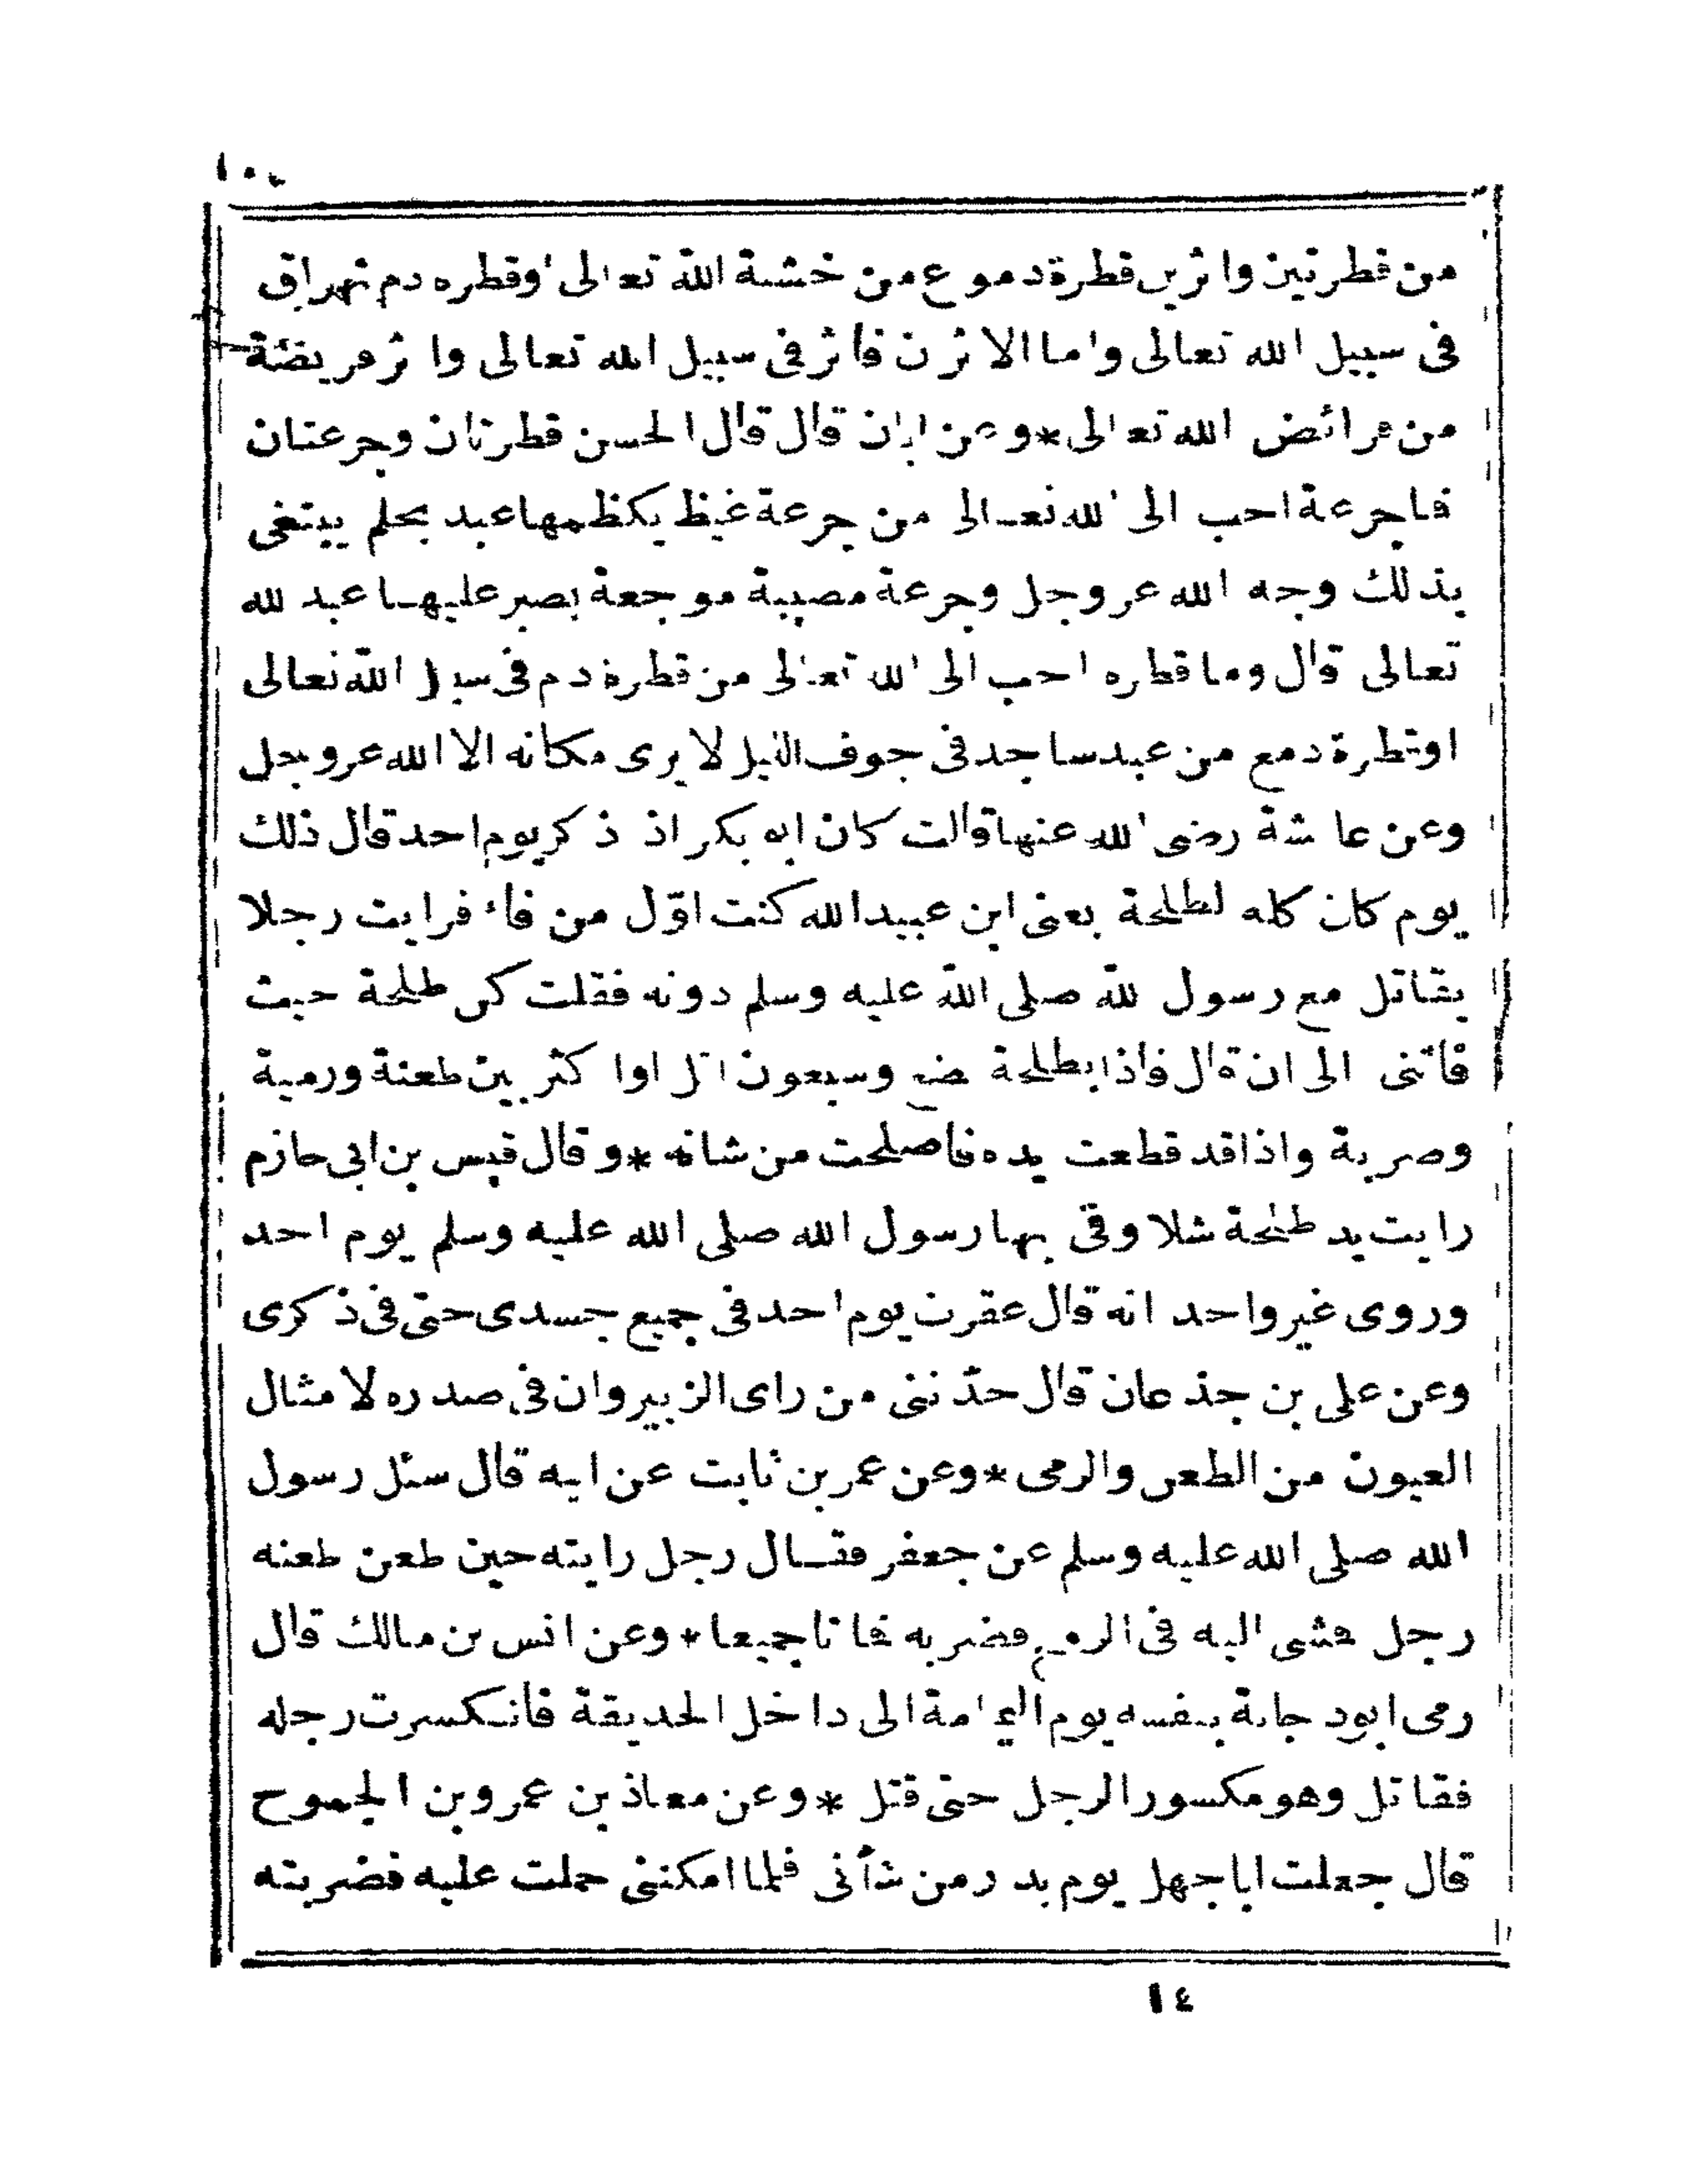 من قطرتين واثرين قطرة دموع من خشية الله تعالى اوقطره دم تهراق
فى سبيل الله تعالى واما الاثرن فاثر فى سبيل الله تعالى واثر فريضة
من فرائض الله تعالى * وعن ابان قال قال الحسن قطرتان وجرعتان
فاجرعة احب الى الله تعالى من جرعة غيظ يكظمها عبد بحلم يبتغى
بذلك وجه الله عز وجل وجرعة مصيبة موجعة يصبر عليها عبد لله
تعالى قال وما قطره احب الى الله تعالى من قطرة دم فى سبيل الله تعالى
اوقطرة دمع من عبد ساجد فى جوف الليل لا يرى مكانه الا الله عز وجل
وعن عائشة رضى الله عنها قالت كان ابو بكر اذ ذكر يوم احد قال ذلك
يوم كان كله لطلحة يعنى ابن عبيد الله كنت اوّل من فاء فرايت رجلا
يقاتل مع رسول الله صلى الله عليه وسلم دونه فقلت كن طلحة حيث
فاتنى الى ان قال فاذا بطلحة بضع وسبعون اقل اوا كثر بين طعنة ورمية
وضربة واذا قد قطعت يده فاصلحت من شانه * وقال قيس بن ابى حازم
رايت يد طلحة شلا وقى بها رسول الله صلى الله عليه وسلم يوم احد
وروى غير واحد انه قال عقرت يوم احد فى جميع جسدى حتى فى ذكرى
وعن على بن جذعان قال حدّثنى من راى الزبير وان فى صدره لامثال
العيون من الطعن والرمى * وعن عمر بن ثابت عن ابيه قال سئل رسول
الله صلى الله عليه وسلم عن جعفر فقال رجل رايته حين طعن طعنه
رجل فمشى اليه فى الرمح فضربه فماتا جميعا * وعن انس بن مالك قال
رمى ابودجانة بنفسه يوم اليمامة الى داخل الحديقة فانكسرت رجله
فقاتل وهو مكسور الرجل حتى قتل * وعن معاذ بن عمرو بن الجموح
قال جعلت ابا جهل يوم بدر من شأنى فلما امكننى حملت عليه فضربته
١٤